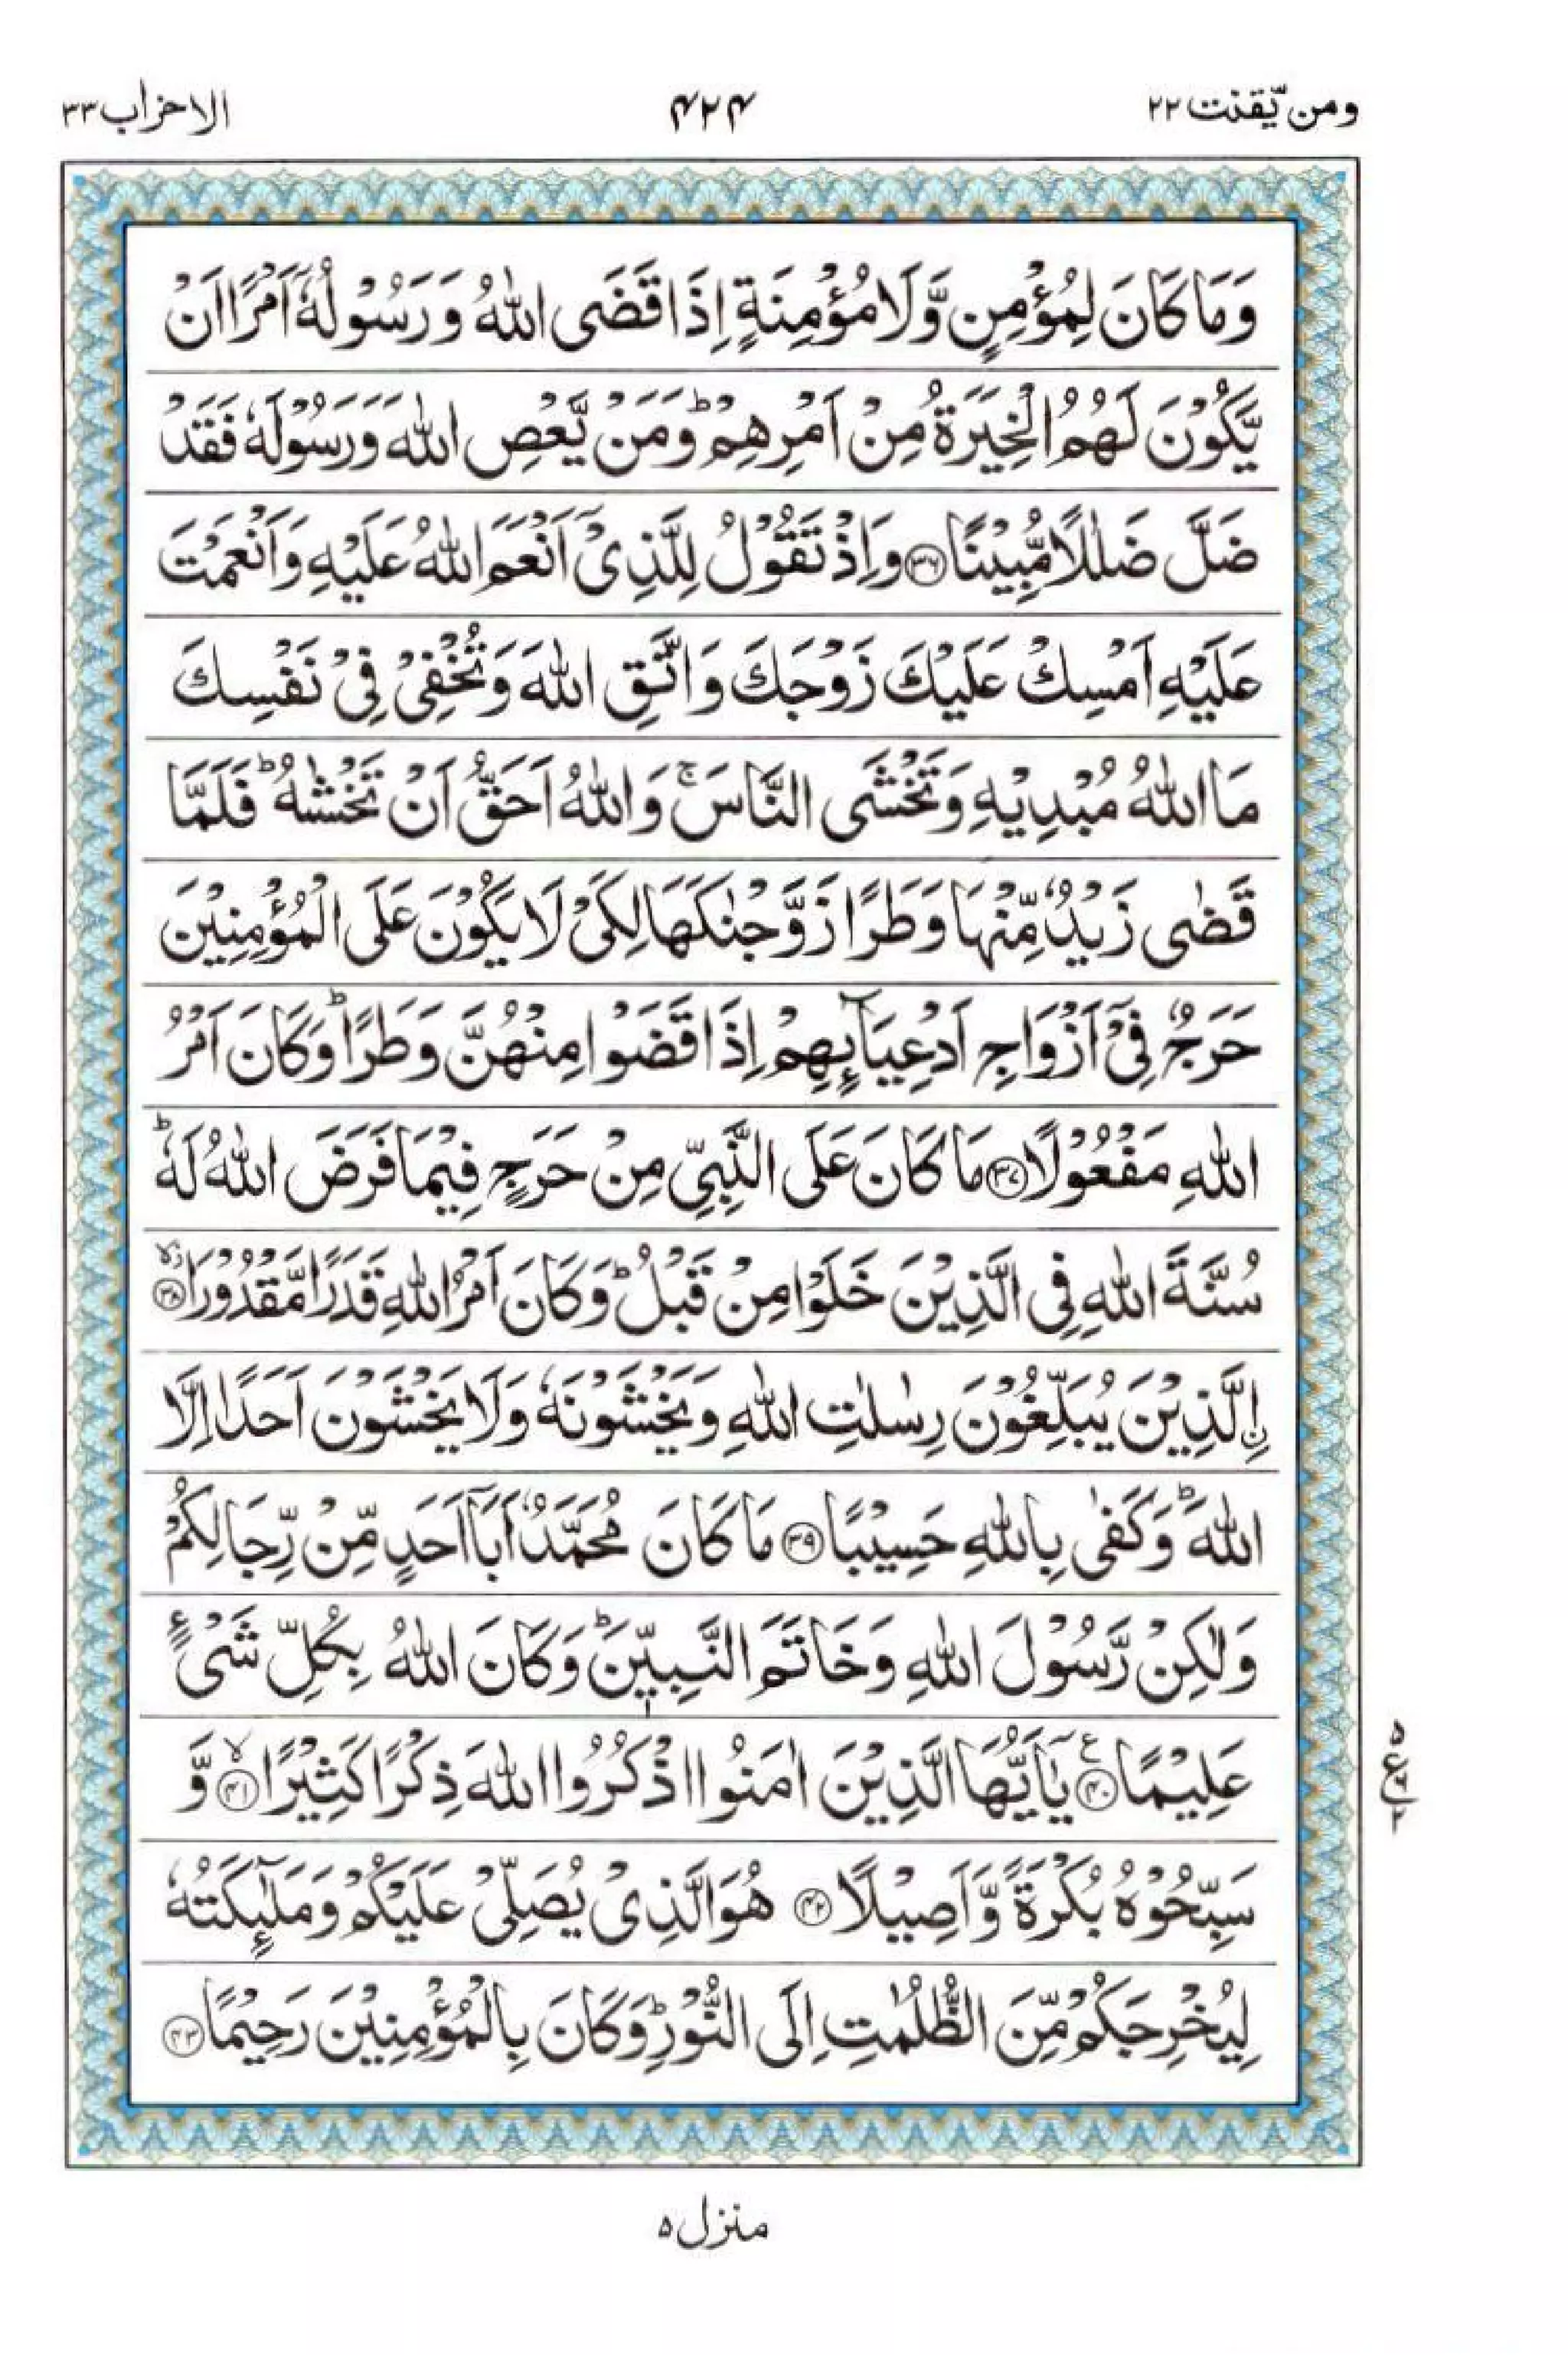 ومن يّقنت ٢٢
۴۲۴
الاحزاب ٣٣
وَمَا كَانَ لِمُؤْمِنٍ وَّلَا مُؤْمِنَةٍ اِذَا قَضَى اللّٰهُ وَرَسُوْلُهٗٓ اَمْرًا اَنْ
يَّكُوْنَ لَهُمُ الْخِيَرَةُ مِنْ اَمْرِهِمْ ؕ وَمَنْ يَّعْصِ اللّٰهَ وَرَسُوْلَهٗ فَقَدْ
ضَلَّ ضَلٰلًا مُّبِيْنًا ﴿۳۶﴾ وَاِذْ تَقُوْلُ لِلَّذِىْٓ اَنْعَمَ اللّٰهُ عَلَيْهِ وَاَنْعَمْتَ
عَلَيْهِ اَمْسِكْ عَلَيْكَ زَوْجَكَ وَاتَّقِ اللّٰهَ وَتُخْفِىْ فِىْ نَفْسِكَ
مَا اللّٰهُ مُبْدِيْهِ وَتَخْشَى النَّاسَ ۚ وَاللّٰهُ اَحَقُّ اَنْ تَخْشٰىهُ ؕ فَلَمَّا
قَضٰى زَيْدٌ مِّنْهَا وَطَرًا زَوَّجْنٰكَهَا لِكَىْ لَا يَكُوْنَ عَلَى الْمُؤْمِنِيْنَ
حَرَجٌ فِىْٓ اَزْوَاجِ اَدْعِيَآئِهِمْ اِذَا قَضَوْا مِنْهُنَّ وَطَرًا ؕ وَكَانَ اَمْرُ
اللّٰهِ مَفْعُوْلًا ﴿۳۷﴾ مَا كَانَ عَلَى النَّبِىِّ مِنْ حَرَجٍ فِيْمَا فَرَضَ اللّٰهُ لَهٗ ؕ
سُنَّةَ اللّٰهِ فِى الَّذِيْنَ خَلَوْا مِنْ قَبْلُ ؕ وَكَانَ اَمْرُ اللّٰهِ قَدَرًا مَّقْدُوْرًا ﴿۳۸﴾
ۨالَّذِيْنَ يُبَلِّغُوْنَ رِسٰلٰتِ اللّٰهِ وَيَخْشَوْنَهٗ وَلَا يَخْشَوْنَ اَحَدًا اِلَّا
اللّٰهَ ؕ وَكَفٰى بِاللّٰهِ حَسِيْبًا ﴿۳۹﴾ مَا كَانَ مُحَمَّدٌ اَبَآ اَحَدٍ مِّنْ رِّجَالِكُمْ
وَلٰكِنْ رَّسُوْلَ اللّٰهِ وَخَاتَمَ النَّبِيّٖنَ ؕ وَكَانَ اللّٰهُ بِكُلِّ شَىْءٍ
عَلِيْمًا ﴿۴۰﴾ يٰٓاَيُّهَا الَّذِيْنَ اٰمَنُوا اذْكُرُوا اللّٰهَ ذِكْرًا كَثِيْرًا ﴿۴۱﴾ وَّ
سَبِّحُوْهُ بُكْرَةً وَّاَصِيْلًا ﴿۴۲﴾ هُوَ الَّذِىْ يُصَلِّىْ عَلَيْكُمْ وَمَلٰٓئِكَتُهٗ
لِيُخْرِجَكُمْ مِّنَ الظُّلُمٰتِ اِلَى النُّوْرِ ؕ وَكَانَ بِالْمُؤْمِنِيْنَ رَحِيْمًا ﴿۴۳﴾
ع ۵ ۶ ۲
منزل ۵